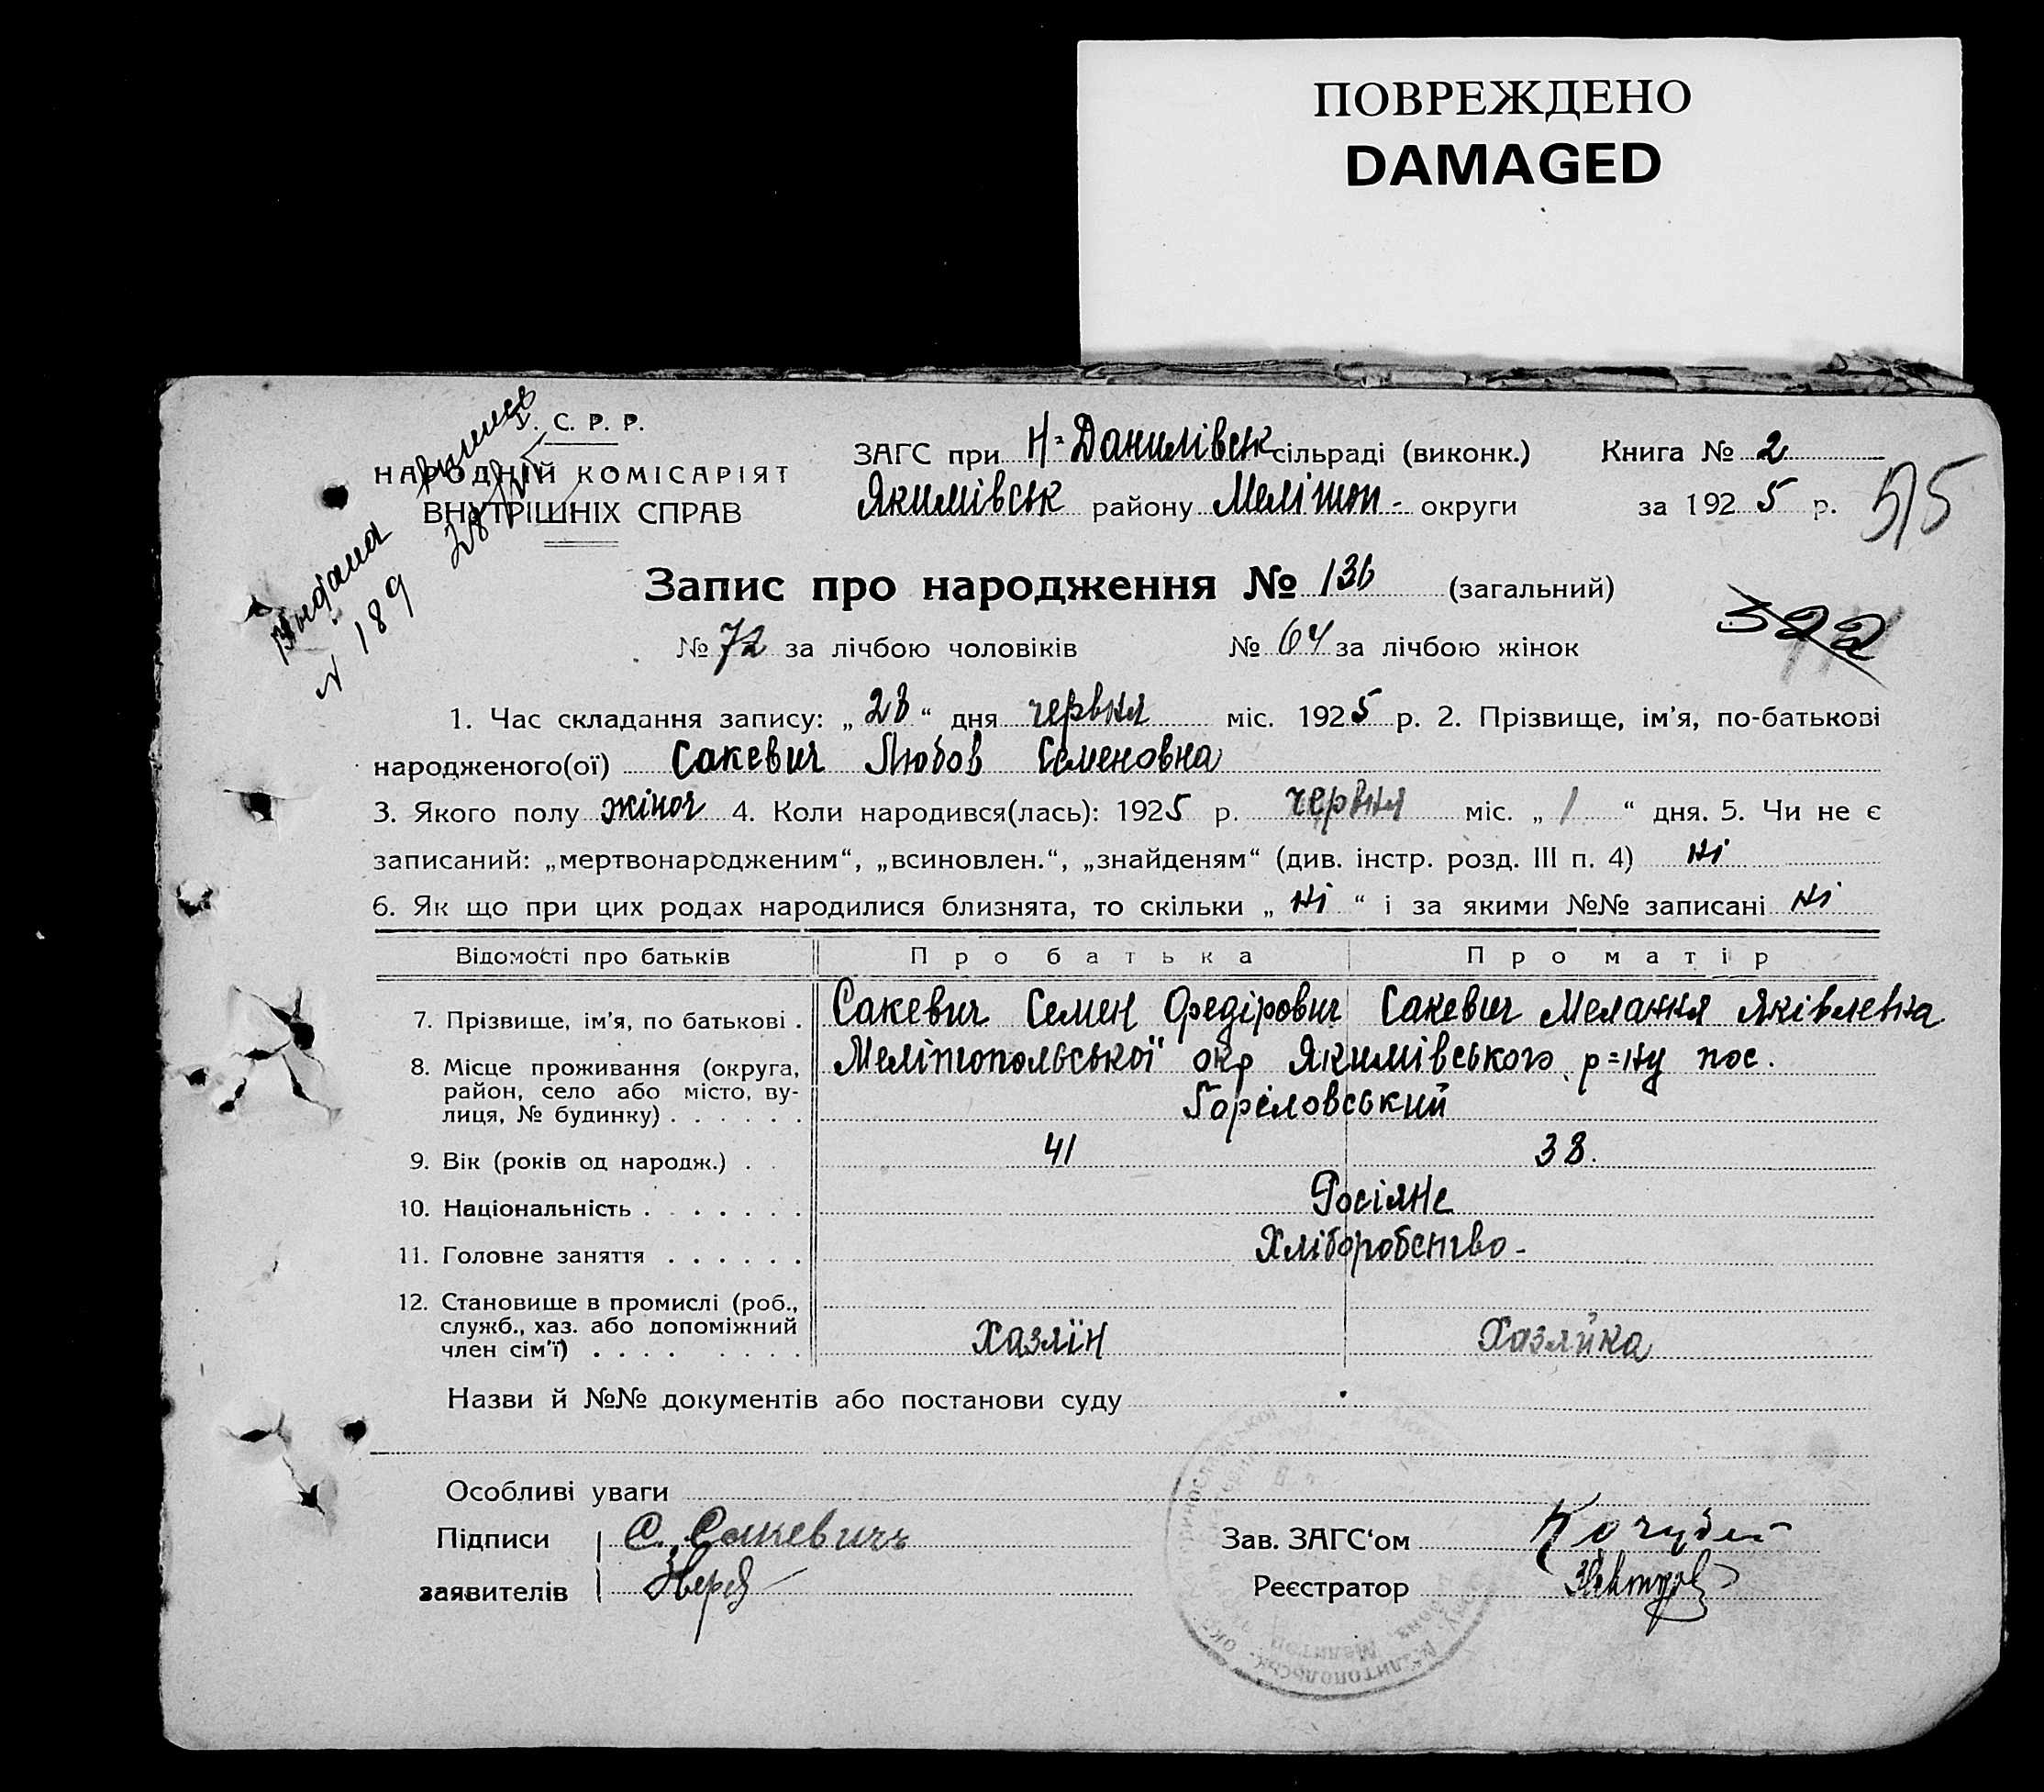 ПОВРЕЖДЕНО
DAMAGED
У. С. Р. Р.
НАРОДНІЙ КОМІСАРІЯТ
ВНУТРІШНІХ СПРАВ
Выдана выпись
N 189
ЗАГС при Н=Данилівськ сільраді (виконк.)
Якимівськ района Мелітоп- округи
Книга № 2
за 1925 р.
515
Запис про народження № 136 (загальний)
322
№ 72 за лічбою чоловіків № 64 за лічбою жінок
1. Час складання запису: „28“ дня червня міс. 1925 р. 2. Прізвище, ім’я, по-батькові
народженого(ої) Сакевич Любов Семеновна
3. Якого полу жіноч 4. Коли народився(лась): 1925 р. червня міс. „1“ дня. 5. Чи не є
записаний: „мертвонародженим“, „всиновлен.“, „знайденям“ (див. інстр. розд. III п. 4) ні
6. Як що при цих родах народилися близнята, то скільки „ні“ і за якими №№ записані ні
Відомості про батьків Про батька Про матір
7. Прізвище, ім’я, по батькові . Сакевич Семен Федірович Сакевич Меланія Яківлевна
8. Місце проживання (округа, Меліпопольської окр Якимівського р=ну пос.
район, село або місто, ву-
лиця, № будинку) . . . . . . Гореловський
9. Вік (років од народж.) . . 41 38.
10. Національність . . . . . . . Росіяне
11. Головне заняття . . . . . . Хліборобство-
12. Становище в промислі (роб.,
служб., хаз. або допоміжний
член сім’ї) . . . . . . . . Хазяїн Хазяйка
Назви й №№ документів або постанови суду
Особливі уваги
Підписи С. Сакевичъ
заявителів
Зав. ЗАГС‘ом Кочубей
Реєстратор